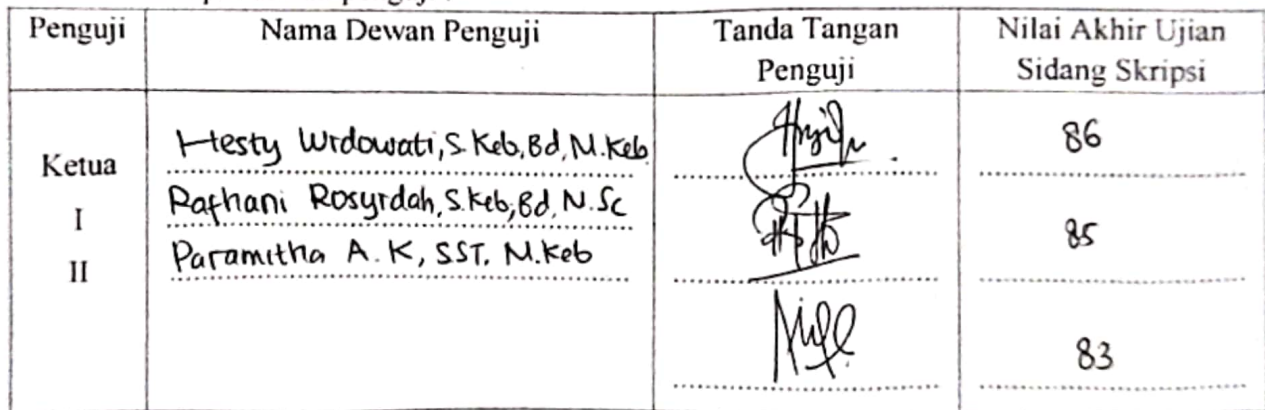 Penguji
Nama Dewan Penguji
Tanda Tangan
Penguji
Nilai Akhir Ujian
Sidang Skripsi
Ketua
Hesty Widowati, S.Keb, Bd, M.Keb
86
I
Rafhani Rosyidah, S.Keb, Bd, M.Sc
85
II
Paramitha A. K, SST, M.Keb
83